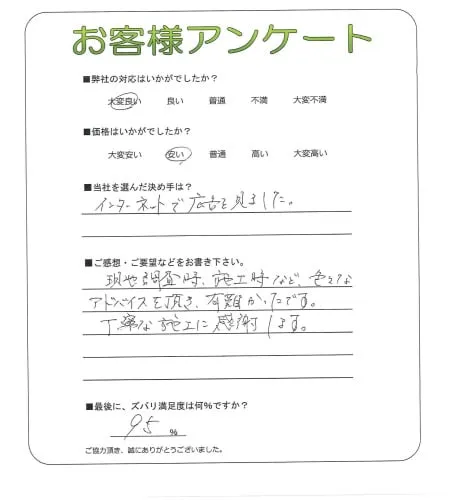 お客様アンケート
■弊社の対応はいかがでしたか？
大変良い 良い 普通 不満 大変不満
■価格はいかがでしたか？
大変安い 安い 普通 高い 大変高い
■当社を選んだ決め手は？
インターネットで広告を見ました。
■ご感想・ご要望などをお書き下さい。
現地調査時、施工時など、色々な
アドバイスを頂き、有難かったです。
丁寧な施工に感謝します。
■最後に、ズバリ満足度は何％ですか？
95 %
ご協力頂き、誠にありがとうございました。